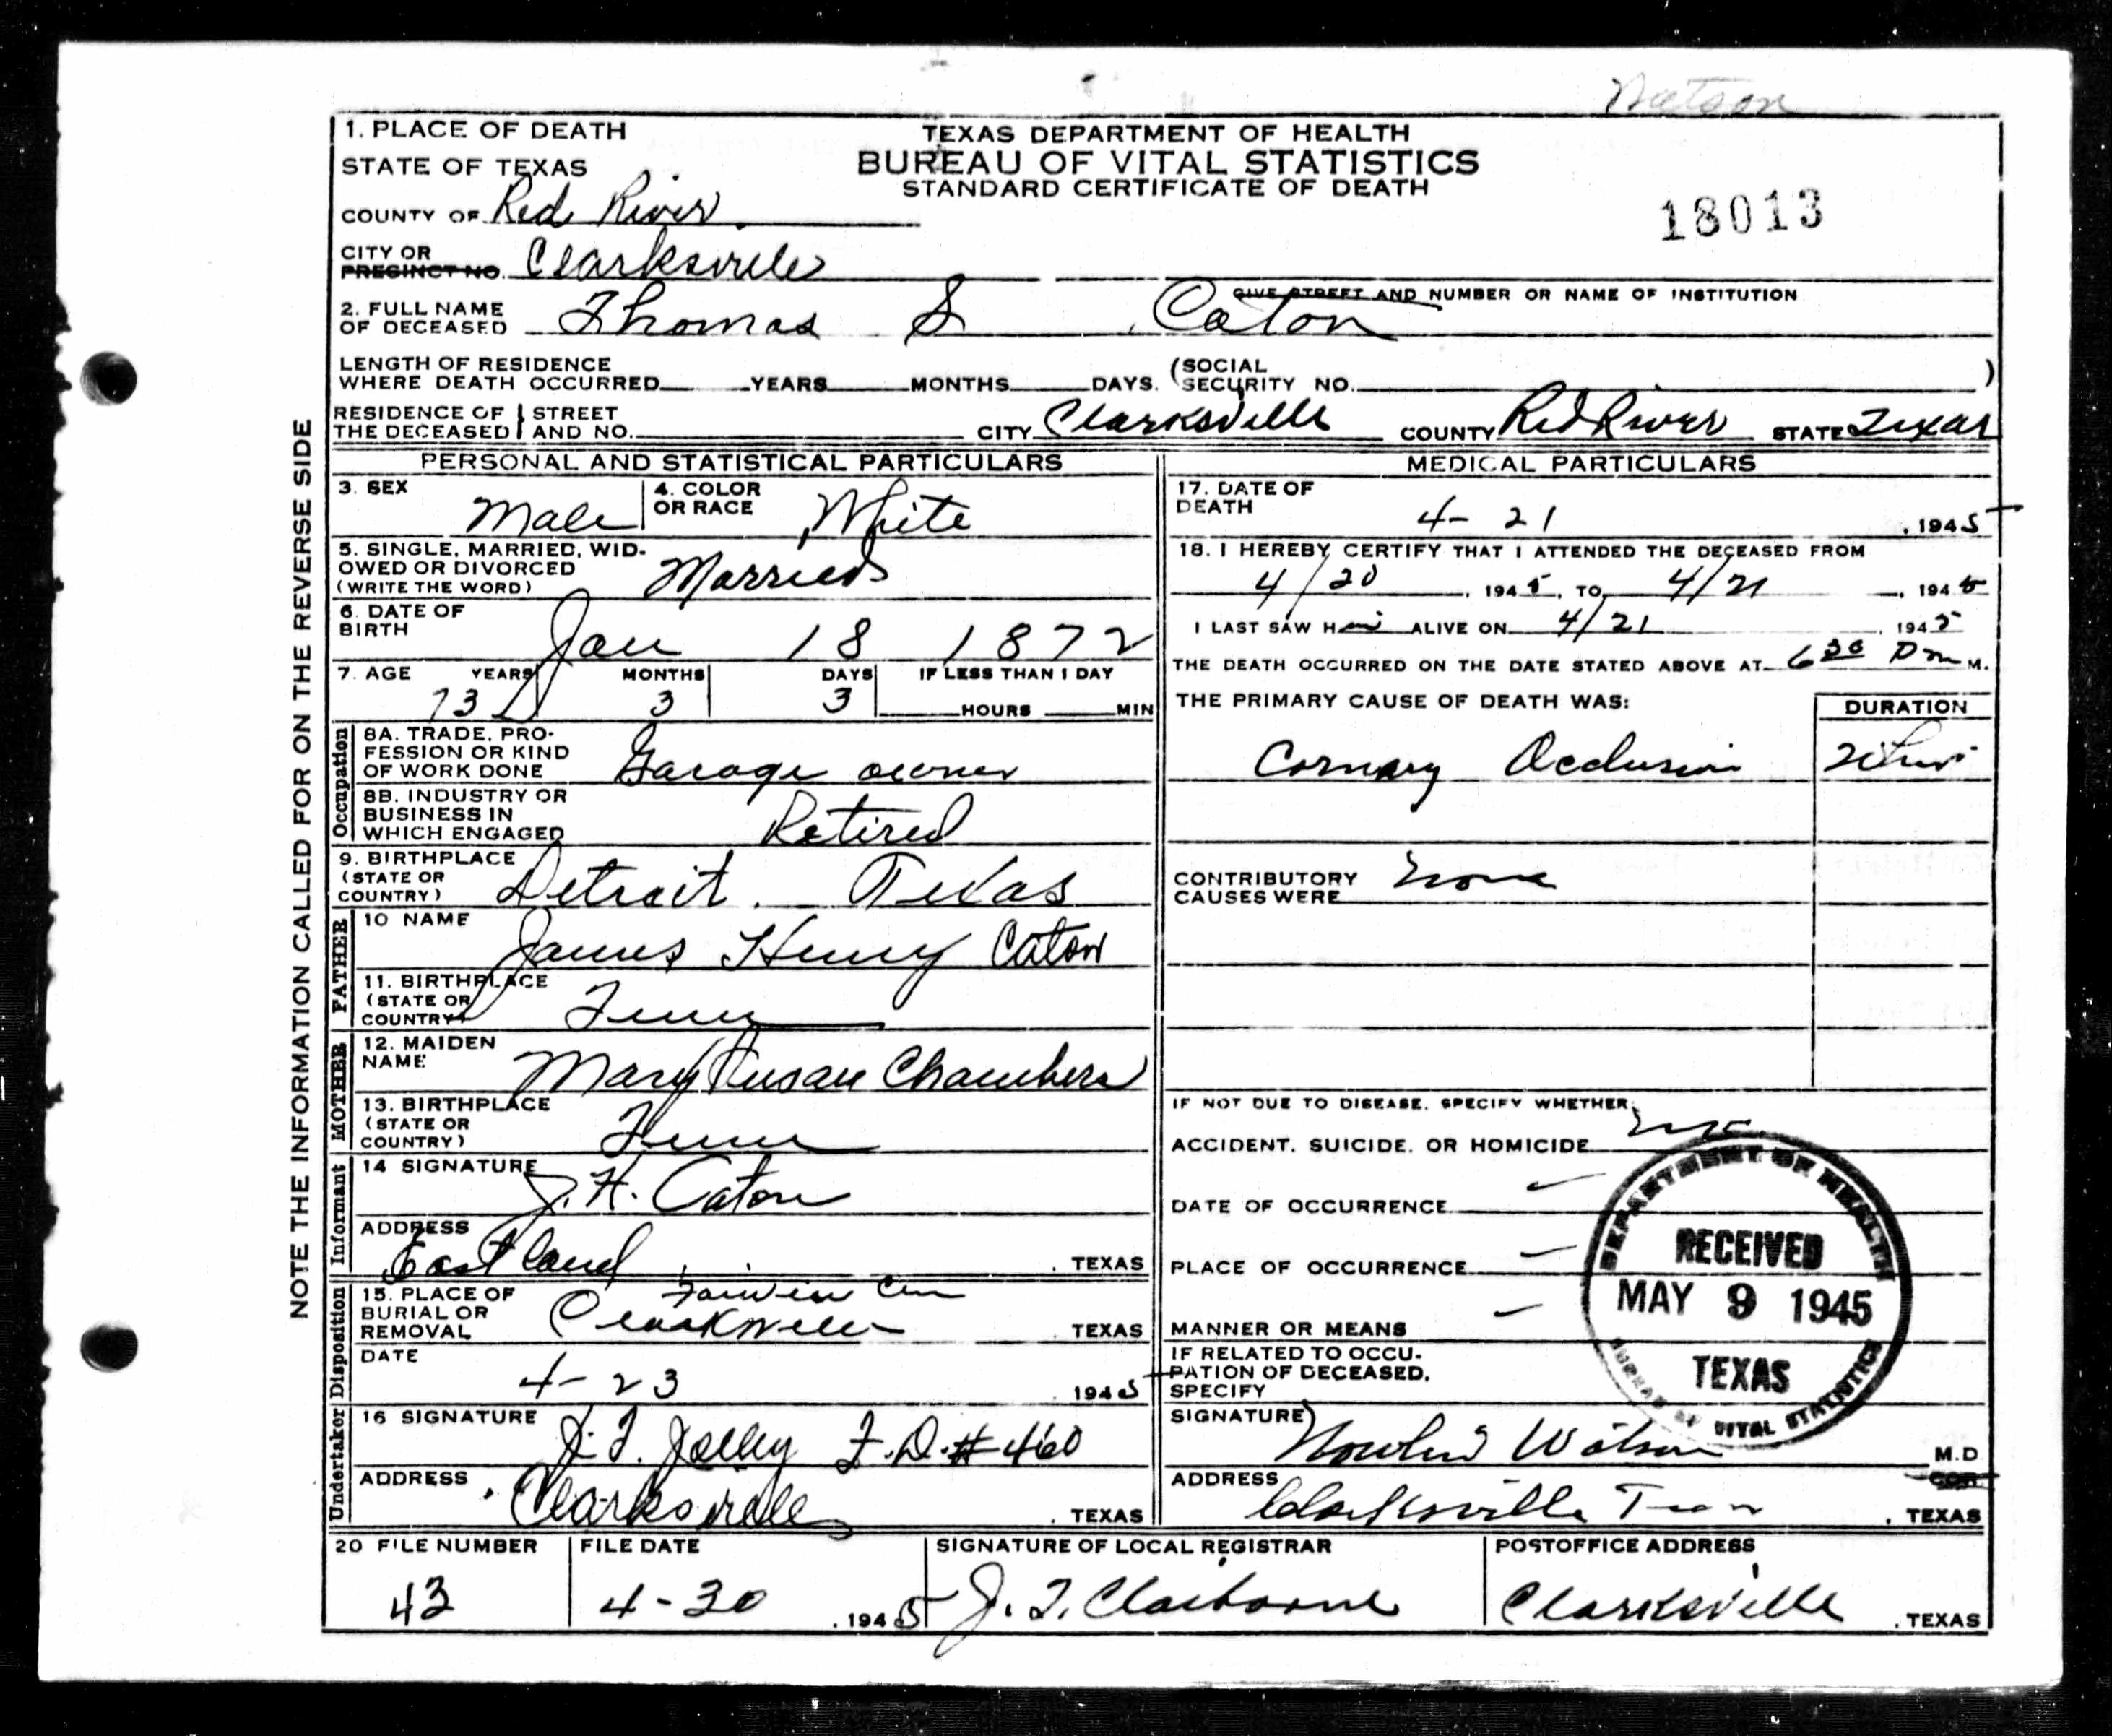 Watson
1. PLACE OF DEATH
TEXAS DEPARTMENT OF HEALTH
BUREAU OF VITAL STATISTICS
STANDARD CERTIFICATE OF DEATH
18013
STATE OF TEXAS
COUNTY OF Red River
CITY OR
PRECINCT NO. Clarksville
GIVE STREET AND NUMBER OR NAME OF INSTITUTION
2. FULL NAME
OF DECEASED Thomas S Caton
LENGTH OF RESIDENCE
WHERE DEATH OCCURRED YEARS MONTHS DAYS. (SOCIAL
SECURITY NO. )
RESIDENCE OF THE DECEASED STREET AND NO. CITY Clarksville COUNTY Red River STATE Texas
NOTE THE INFORMATION CALLED FOR ON THE REVERSE SIDE
PERSONAL AND STATISTICAL PARTICULARS
3. SEX Male 4. COLOR OR RACE White
5. SINGLE, MARRIED, WID-
OWED OR DIVORCED
(WRITE THE WORD) Married
6. DATE OF
BIRTH Jan 18 1872
7. AGE YEARS MONTHS DAYS IF LESS THAN 1 DAY
73 3 3 HOURS MIN
Occupation
8A. TRADE, PRO-
FESSION OR KIND
OF WORK DONE Garage owner
8B. INDUSTRY OR
BUSINESS IN
WHICH ENGAGED Retired
9. BIRTHPLACE
(STATE OR
COUNTRY) Detroit. Texas
FATHER
10 NAME James Henry Caton
11. BIRTHPLACE
(STATE OR
COUNTRY) Tenn
MOTHER
12. MAIDEN
NAME Mary Susan Chambers
13. BIRTHPLACE
(STATE OR
COUNTRY) Tenn
Informant
14 SIGNATURE J. H. Caton
ADDRESS Eastland, TEXAS
Disposition
15. PLACE OF
BURIAL OR
REMOVAL Cem
Clarksville TEXAS
DATE 4-23 1945
Undertaker
16 SIGNATURE J. F. Jolley F.D. #460
ADDRESS Clarksville, TEXAS
MEDICAL PARTICULARS
17. DATE OF
DEATH 4- 21, 1945
18. I HEREBY CERTIFY THAT I ATTENDED THE DECEASED FROM
4/20, 1945, TO 4/21, 1945
I LAST SAW Him ALIVE ON 4/21, 1945
THE DEATH OCCURRED ON THE DATE STATED ABOVE AT 6 30 Pm M.
THE PRIMARY CAUSE OF DEATH WAS: DURATION
Cornary Occlusion
CONTRIBUTORY
CAUSES WERE None
IF NOT DUE TO DISEASE, SPECIFY WHETHER:
ACCIDENT, SUICIDE, OR HOMICIDE
DATE OF OCCURRENCE
PLACE OF OCCURRENCE
MANNER OR MEANS
IF RELATED TO OCCU-
PATION OF DECEASED,
SPECIFY
DEPARTMENT OF HEALTH
RECEIVED
MAY 9 1945
TEXAS
BUREAU OF VITAL STATISTICS
SIGNATURE Nowlin Watson M.D
COR
ADDRESS Clarksville Texas, TEXAS
20 FILE NUMBER FILE DATE SIGNATURE OF LOCAL REGISTRAR POSTOFFICE ADDRESS
43 4-30, 1945 J. T. Claiborne Clarksville, TEXAS